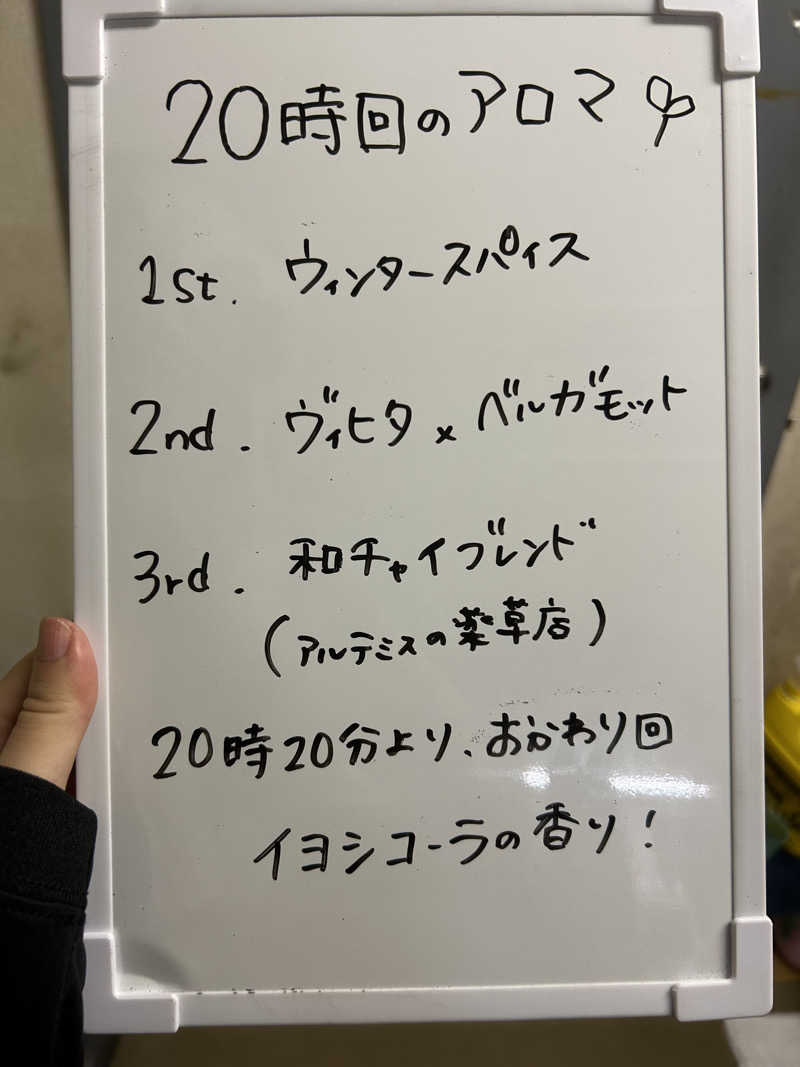 20時回のアロマ
1st. ウィンタースパイス
2nd. ヴィヒタ×ベルガモット
3rd. 和チャイブレンド
(アルテミスの薬草店)
20時20分より、おかわり回
イヨシコーラの香り!